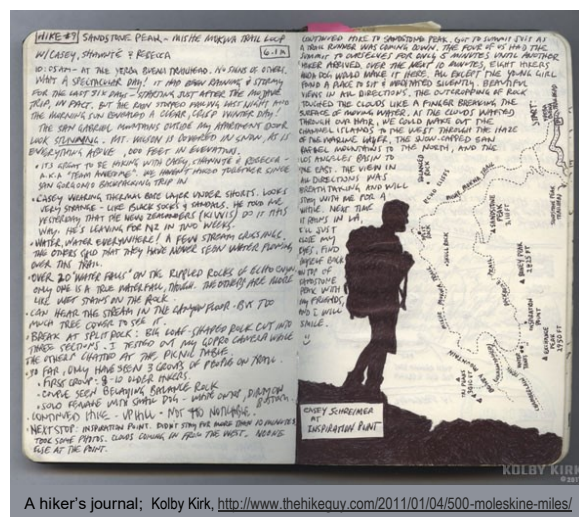 HIKE #9 SANDSTONE PEAK - MISHE MOKWA TRAIL LOOP
W/CASEY, SHAWNTÉ & REBECCA
6.1 M
10:05AM - AT THE YERBA BUENA TRAILHEAD. NO SIGNS OF OTHERS.
WHAT A SPECTACULAR DAY! IT HAD BEEN RAINING & STORMY
FOR THE LAST SIX DAYS - STARTING JUST AFTER THE MOJAVE
TRIP, IN FACT. BUT THE RAIN STOPPED FALLING LAST NIGHT AND
THE MORNING SUN REVEALED A CLEAR, CRISP WINTER DAY!
THE SAN GABRIEL MOUNTAINS OUTSIDE MY APARTMENT DOOR
LOOK STUNNING. BUT WILSON IS COVERED IN SNOW, AS IS
EVERYTHING ABOVE FEET IN ELEVATION.
• IT'S GREAT TO BE HIKING WITH CASEY, SHAWNTÉ & REBECCA -
A.K.A "TEAM AWESOME". WE HAVEN'T HIKED TOGETHER SINCE
SAN GORGONIO BACKPACKING TRIP IN
• CASEY WEARING THERMAL BASE LAYER UNDER SHORTS. LOOKS
VERY STRANGE - LIKE BLACK SOCKS & SANDALS. HE TOLD ME
YESTERDAY THAT THE NEW ZEALANDERS (KIWIS) DO IT THIS
WAY. HE'S LEAVING FOR NZ IN TWO WEEKS.
• WATER, WATER EVERYWHERE! A FEW STREAM CROSSINGS.
THE OTHERS SAID THAT THEY HAVE NEVER SEEN WATER FLOWING
OVER THE TRAIL.
• OVER 20 "WATER FALLS" ON THE RIPPLED ROCKS OF ECHO CLIFFS.
ONLY ONE IS A TRUE WATERFALL, THOUGH. THE OTHERS ARE MORE
LIKE WET STAINS ON THE ROCK.
• CAN HEAR THE STREAM IN THE CANYON FLOOR - BUT TOO
MUCH TREE COVER TO SEE IT.
• BREAK AT SPLIT ROCK: BIG LOAF-SHAPED ROCK CUT INTO
THREE SECTIONS. I TESTED OUT MY GOPRO CAMERA WHILE
THE OTHERS CHATTED AT THE PICNIC TABLE.
• SO FAR, ONLY HAVE SEEN 3 GROUPS OF PEOPLE ON TRAIL
• FIRST GROUP: 8-10 OLDER HIKERS
• COUPLE SEEN NEARING BALANCE ROCK
• SOLO FEMALE WITH SMALL DOG -
• CONTINUED HIKE - UPHILL - NOT TOO NOTICABLE.
• NEXT STOP: INSPIRATION POINT. DIDN'T STAY FOR MORE THAN 10 MINUTES
TOOK SOME PHOTOS. CLOUDS COMING IN FROM THE WEST. NO ONE
ELSE AT THE POINT.
CONTINUED HIKE TO SANDSTONE PEAK. GOT TO SUMMIT JUST AS
A TRAIL RUNNER WAS COMING DOWN. THE FOUR OF US HAD THE
SUMMIT TO OURSELVES FOR ONLY 5 MINUTES UNTIL ANOTHER
HIKER ARRIVED. OVER THE NEXT 10 MINUTES, EIGHT HIKERS
AND A DOG WOULD MAKE IT HERE. ALL EXCEPT THE YOUNG GIRL
FOUND A PLACE TO SIT & MEDITATED SILENTLY. BEAUTIFUL
VIEWS IN ALL DIRECTIONS. THE OUTCROPPING OF ROCK
TOUCHED THE CLOUDS LIKE A FINGER BREAKING THE
SURFACE OF MOVING WATER. AS THE CLOUDS WAFTED
THROUGH OUR HAIR, WE COULD MAKE OUT THE
CHANNEL ISLANDS TO THE WEST THROUGH THE HAZE
OF THE MARINE LAYER, THE SNOW-CAPPED SAN
RAFAEL MOUNTAINS TO THE NORTH, AND THE
LOS ANGELES BASIN TO
THE EAST. THE VIEW IN
ALL DIRECTIONS WAS
BREATH TAKING AND WILL
STAY WITH ME FOR A
WHILE. NEXT TIME
IT RAINS IN LA,
I'LL JUST
CLOSE MY
EYES, FIND
MYSELF BACK
ON TOP OF
SANDSTONE
PEAK WITH
MY FRIENDS,
AND I WILL
SMILE.
START!
BALANCED ROCK
ECHO CLIFFS
MISHE MOKWA TRAIL
SPLIT ROCK
SKULL ROCK
SANDSTONE PEAK
3,111 FT
BONEY PEAK
2825 FT
INSPIRATION POINT
EXCHANGE PEAK
2950 FT
TRI PEAKS
CASEY SCHREINER
AT
INSPIRATION POINT
KOLBY KIRK
A hiker's journal; Kolby Kirk, http://www.thehikeguy.com/2011/01/04/500-moleskine-miles/